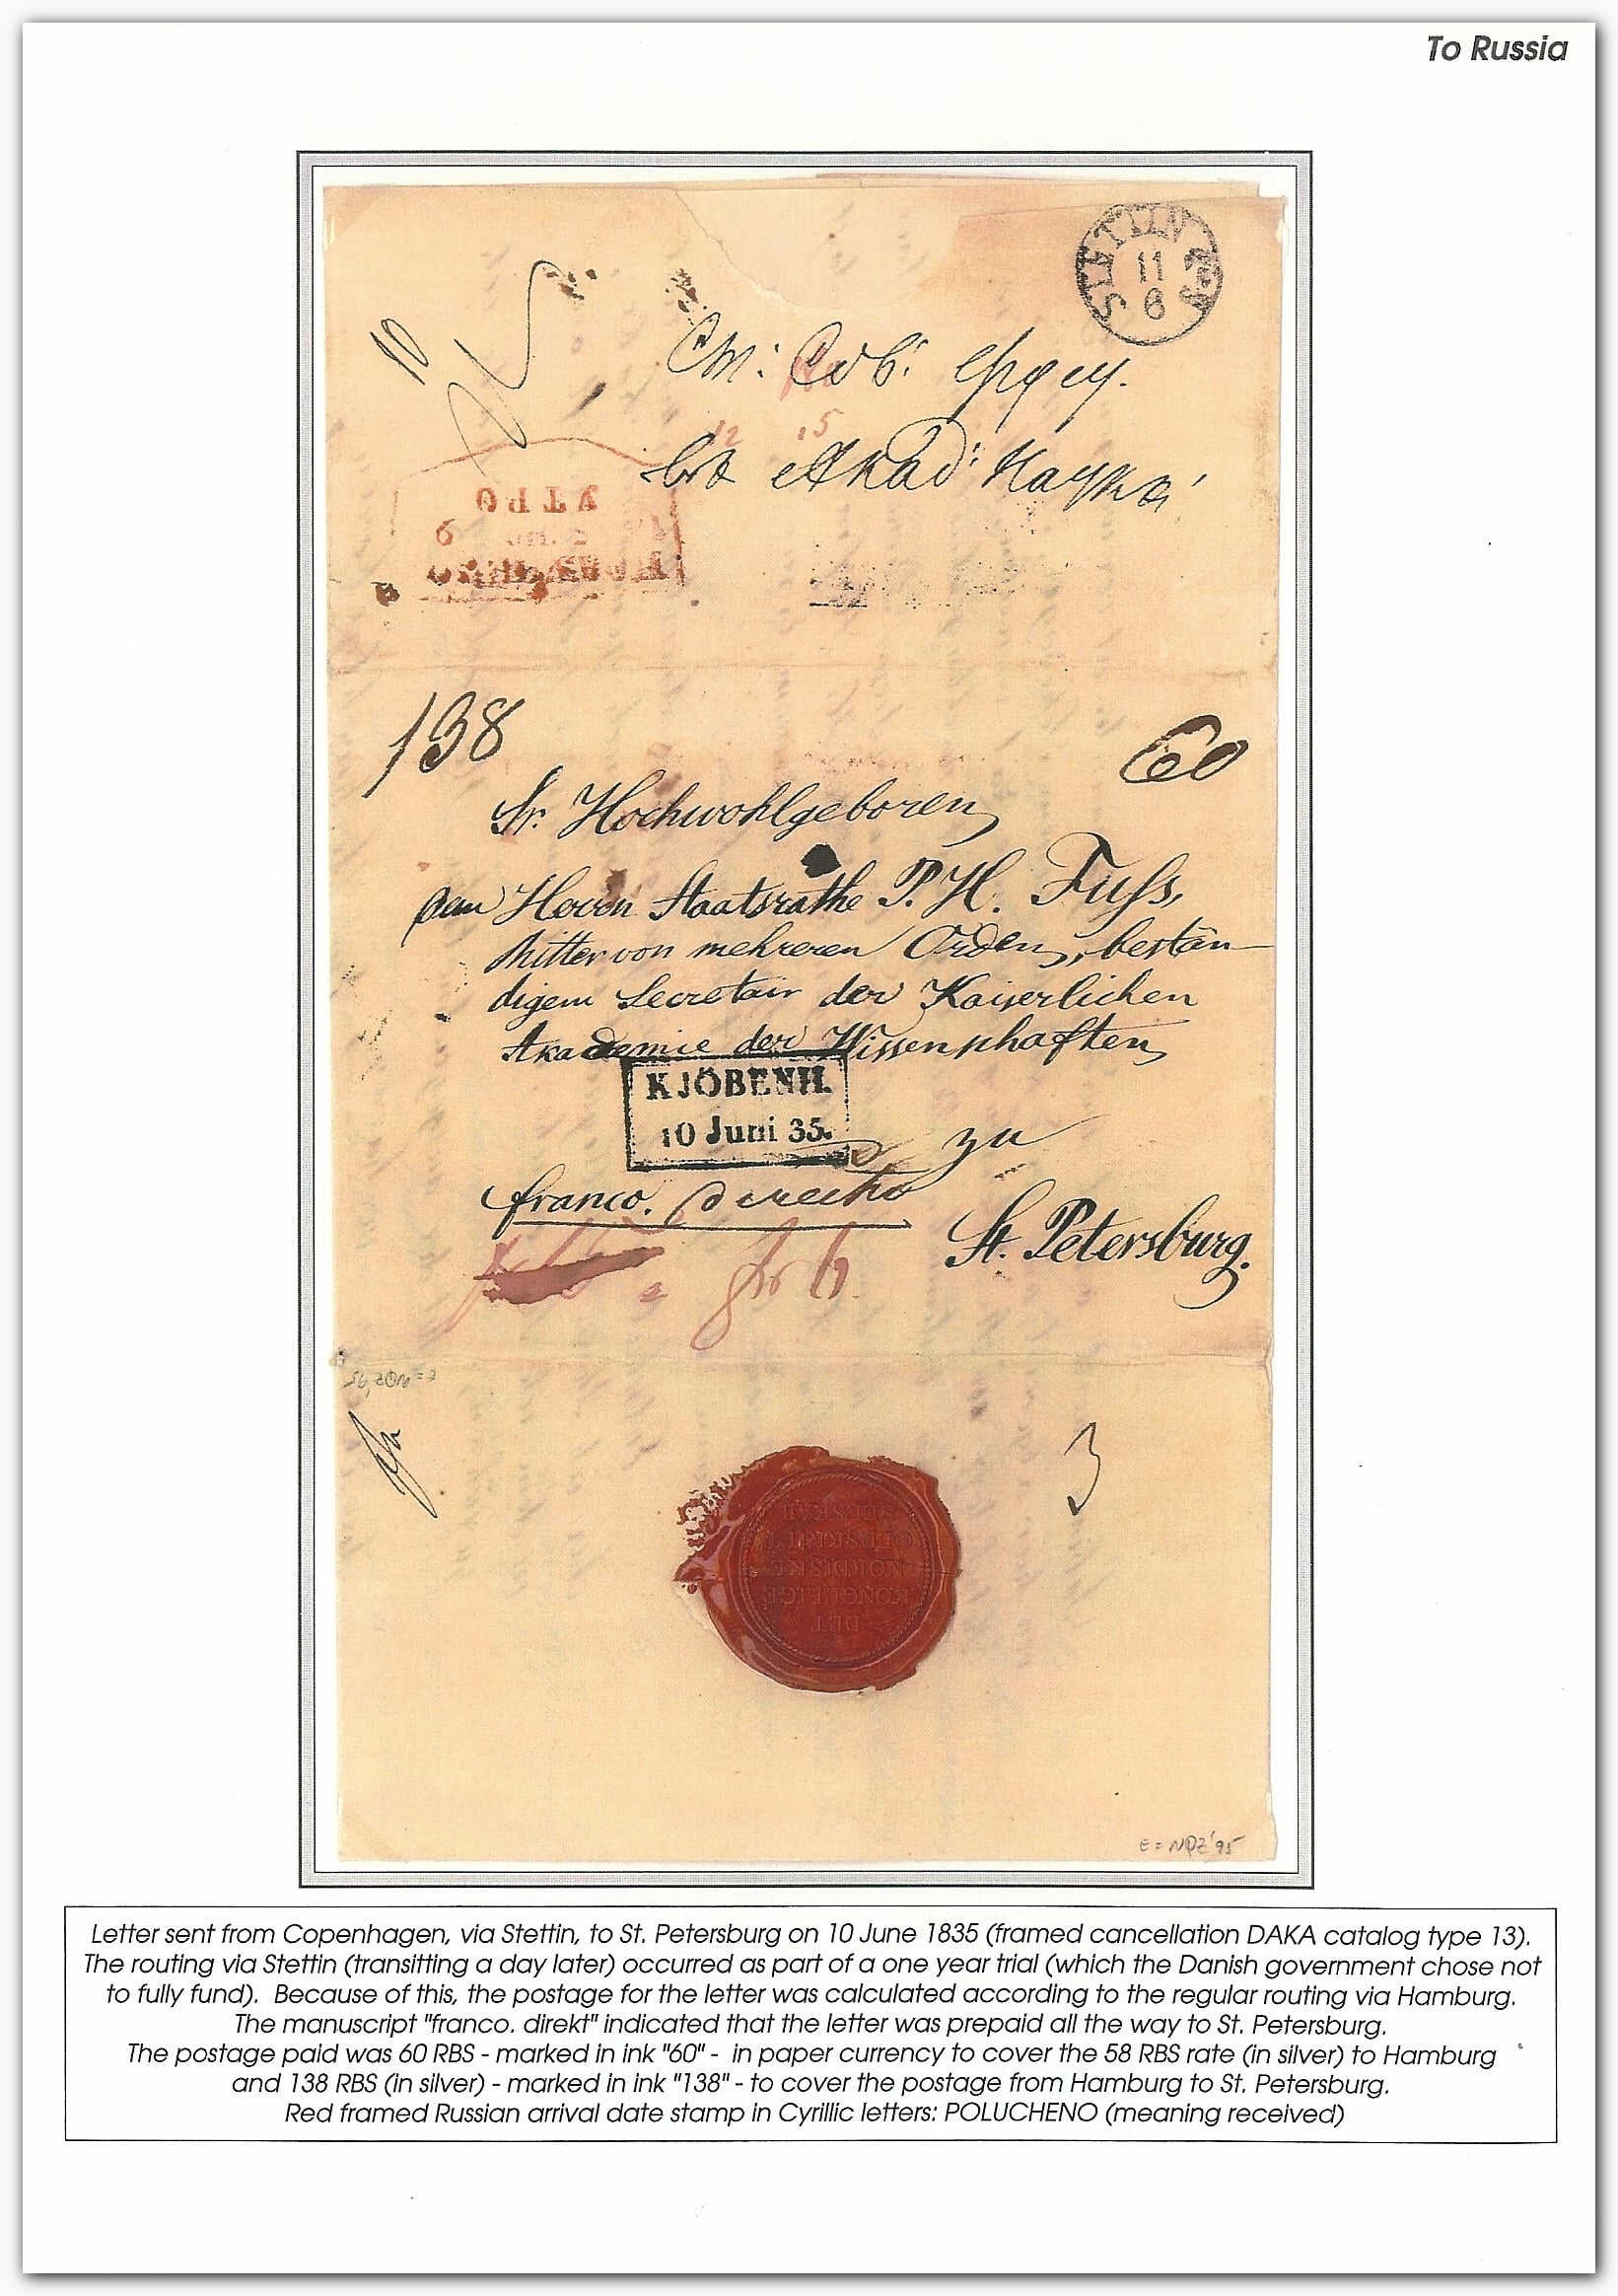 To Russia
STETTIN
11
6
10
См: Сов: Фусу.
12 15
въ Акад: Наукъ
УТРО
9
138
60
Sr. Hochwohlgeboren
dem Herrn Staatsrathe P. H. Fuſs,
Ritter von mehreren Orden, bestän-
digem Secretair der Kaiserlichen
Akademie der Wissenschaften
KJÖBENH.
10 Juni 35.
zu
franco.
St. Petersburg.
3
DET
KONGELIGE
NORDISKE
OLDSKRIFT
SELSKAB
E = NPZ '95
Letter sent from Copenhagen, via Stettin, to St. Petersburg on 10 June 1835 (framed cancellation DAKA catalog type 13).
The routing via Stettin (transitting a day later) occurred as part of a one year trial (which the Danish government chose not
to fully fund). Because of this, the postage for the letter was calculated according to the regular routing via Hamburg.
The manuscript "franco. direkt" indicated that the letter was prepaid all the way to St. Petersburg.
The postage paid was 60 RBS - marked in ink "60" - in paper currency to cover the 58 RBS rate (in silver) to Hamburg
and 138 RBS (in silver) - marked in ink "138" - to cover the postage from Hamburg to St. Petersburg.
Red framed Russian arrival date stamp in Cyrillic letters: POLUCHENO (meaning received)